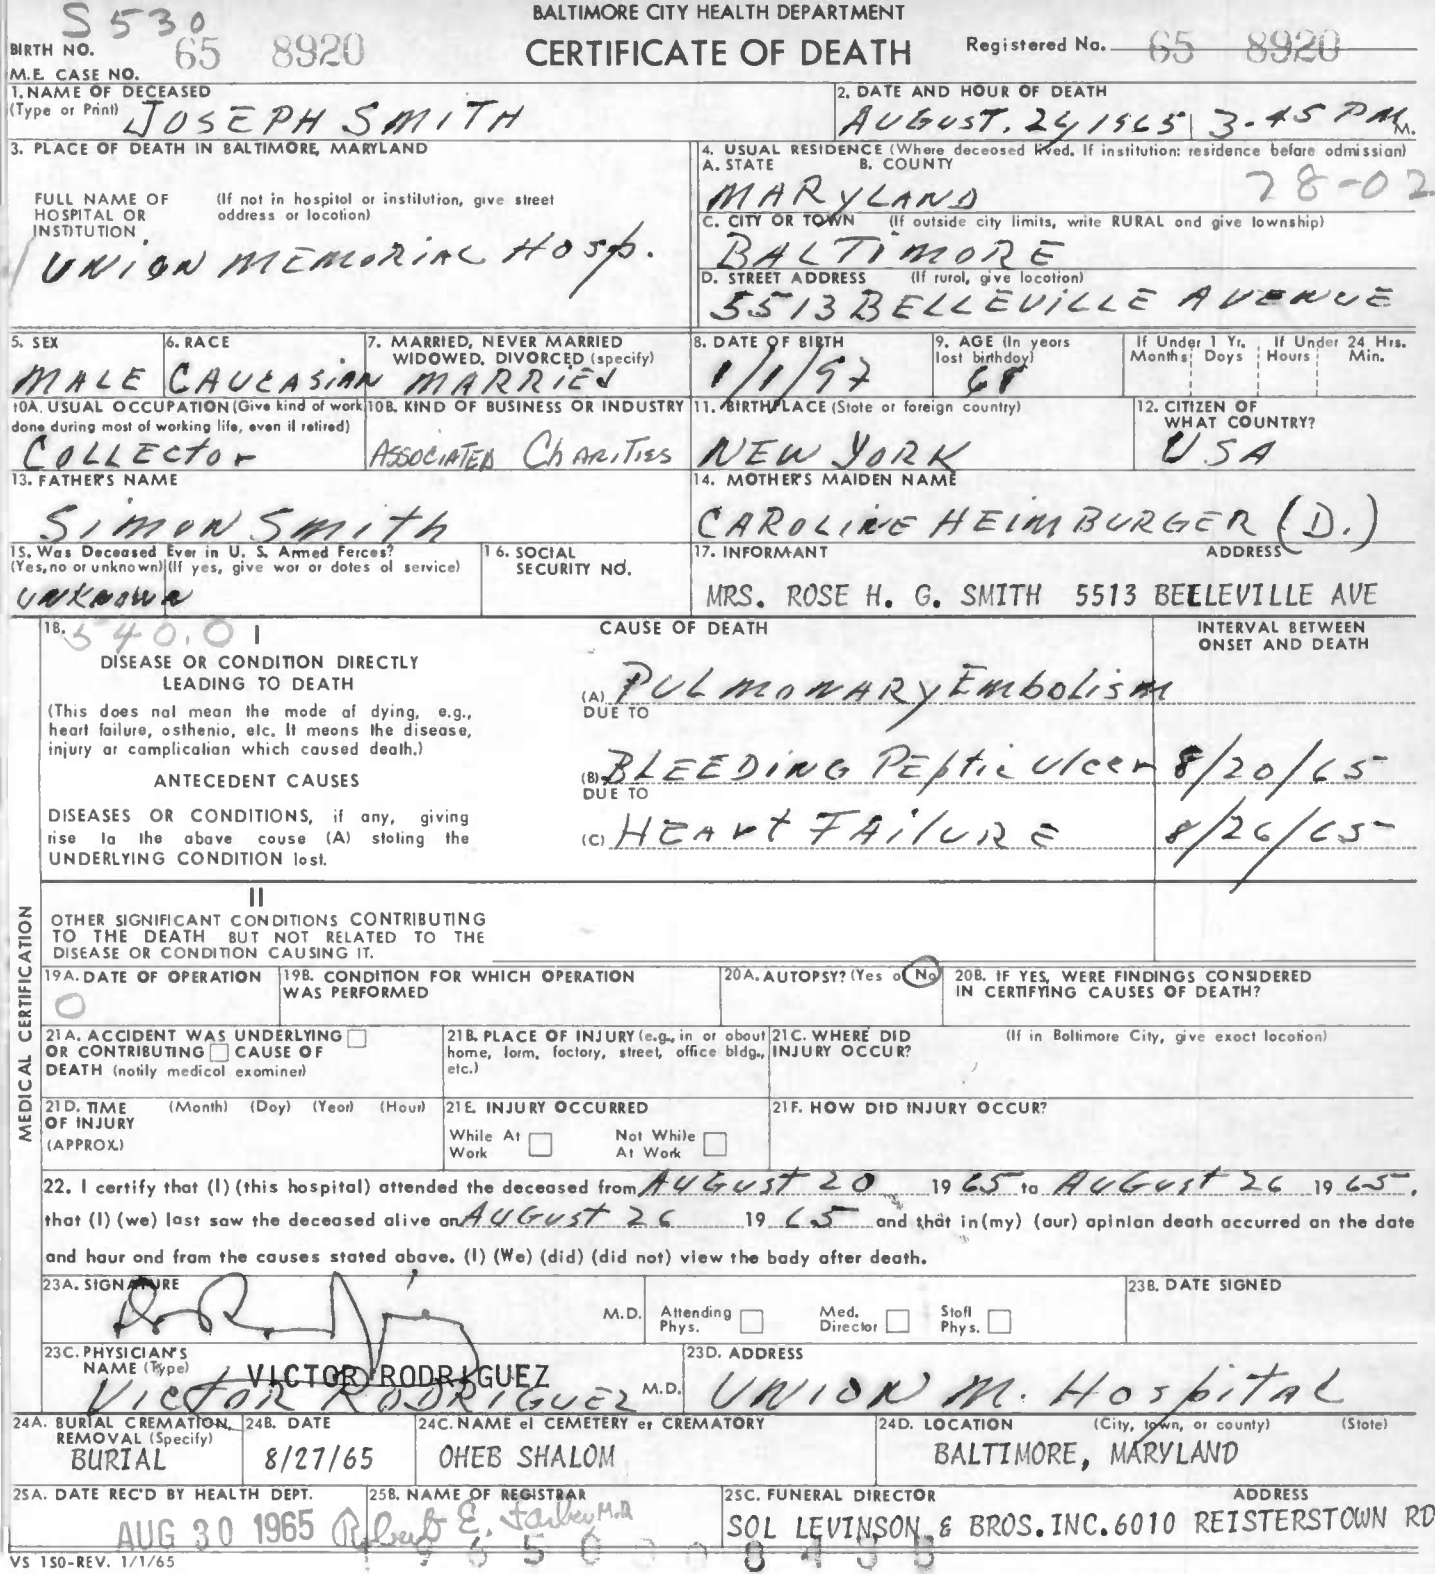 S 530
BALTIMORE CITY HEALTH DEPARTMENT
BIRTH NO. 65 8920
CERTIFICATE OF DEATH
Registered No. 65 8920
M.E. CASE NO.
1. NAME OF DECEASED
(Type or Print) JOSEPH SMITH
2. DATE AND HOUR OF DEATH
AUGUST. 26, 1965 3-45 PM M.
3. PLACE OF DEATH IN BALTIMORE, MARYLAND
FULL NAME OF HOSPITAL OR INSTITUTION
(If not in hospital or institution, give street address or location)
UNION MEMORIAL Hosp.
4. USUAL RESIDENCE (Where deceased lived. If institution: residence before admission)
A. STATE B. COUNTY
MARYLAND 28-02
C. CITY OR TOWN (If outside city limits, write RURAL and give township)
BALTIMORE
D. STREET ADDRESS (If rural, give location)
5513 BELLEVILLE AVENUE
5. SEX
MALE
6. RACE
CAUCASIAN
7. MARRIED, NEVER MARRIED
WIDOWED, DIVORCED (specify)
MARRIED
8. DATE OF BIRTH
1/1/97
9. AGE (In years
last birthday)
68
If Under 1 Yr. If Under 24 Hrs.
Months Days Hours Min.
10A. USUAL OCCUPATION (Give kind of work
done during most of working life, even if retired)
COLLECtor
10B. KIND OF BUSINESS OR INDUSTRY
ASSOCIATED ChARITIES
11. BIRTHPLACE (State or foreign country)
NEW YORK
12. CITIZEN OF
WHAT COUNTRY?
USA
13. FATHER'S NAME
SIMON SMITh
14. MOTHER'S MAIDEN NAME
CAROLINE HEIMBURGER (D.)
15. Was Deceased Ever in U. S. Armed Forces?
(Yes, no or unknown) (If yes, give war or dates of service)
UNKNOWN
16. SOCIAL
SECURITY NO.
17. INFORMANT ADDRESS
MRS. ROSE H. G. SMITH 5513 BELLEVILLE AVE
18. 540.0 I
CAUSE OF DEATH
INTERVAL BETWEEN
ONSET AND DEATH
DISEASE OR CONDITION DIRECTLY
LEADING TO DEATH
(This does not mean the mode of dying, e.g.,
heart failure, asthenia, etc. It means the disease,
injury or complication which caused death.)
(A) PULMONARY Embolism
DUE TO
ANTECEDENT CAUSES
(B) BLEEDING PEptic Ulcer 8/20/65
DUE TO
DISEASES OR CONDITIONS, if any, giving
rise to the above cause (A) stating the
UNDERLYING CONDITION last.
(C) HEArt FAILURE 8/26/65
II
OTHER SIGNIFICANT CONDITIONS CONTRIBUTING
TO THE DEATH BUT NOT RELATED TO THE
DISEASE OR CONDITION CAUSING IT.
MEDICAL CERTIFICATION
19A. DATE OF OPERATION
0
19B. CONDITION FOR WHICH OPERATION
WAS PERFORMED
20A. AUTOPSY? (Yes or No)
20B. IF YES, WERE FINDINGS CONSIDERED
IN CERTIFYING CAUSES OF DEATH?
21A. ACCIDENT WAS UNDERLYING
OR CONTRIBUTING CAUSE OF
DEATH (notify medical examiner)
21B. PLACE OF INJURY (e.g., in or about
home, farm, factory, street, office bldg.,
etc.)
21C. WHERE DID
INJURY OCCUR?
(If in Baltimore City, give exact location)
21D. TIME (Month) (Day) (Year) (Hour)
OF INJURY
(APPROX.)
21E. INJURY OCCURRED
While At Work
Not While At Work
21F. HOW DID INJURY OCCUR?
22. I certify that (I) (this hospital) attended the deceased from AUGUST 20 19 65 to AUGUST 26 19 65,
that (I) (we) last saw the deceased alive on AUGUST 26 19 65 and that in (my) (our) opinion death occurred on the date
and hour and from the causes stated above. (I) (We) (did) (did not) view the body after death.
23A. SIGNATURE
M.D.
Attending Phys.
Med. Director
Staff Phys.
23B. DATE SIGNED
23C. PHYSICIAN'S
NAME (Type) VICTOR RODRIGUEZ
VICTOR RODRIGUEZ M.D.
23D. ADDRESS
UNION M. HospitaL
24A. BURIAL CREMATION,
REMOVAL (Specify)
BURIAL
24B. DATE
8/27/65
24C. NAME of CEMETERY or CREMATORY
OHEB SHALOM
24D. LOCATION (City, town, or county) (State)
BALTIMORE, MARYLAND
25A. DATE REC'D BY HEALTH DEPT.
AUG 30 1965
25B. NAME OF REGISTRAR
Robert E. Farber M.D.
25C. FUNERAL DIRECTOR ADDRESS
SOL LEVINSON & BROS. INC. 6010 REISTERSTOWN RD
VS 150-REV. 1/1/65